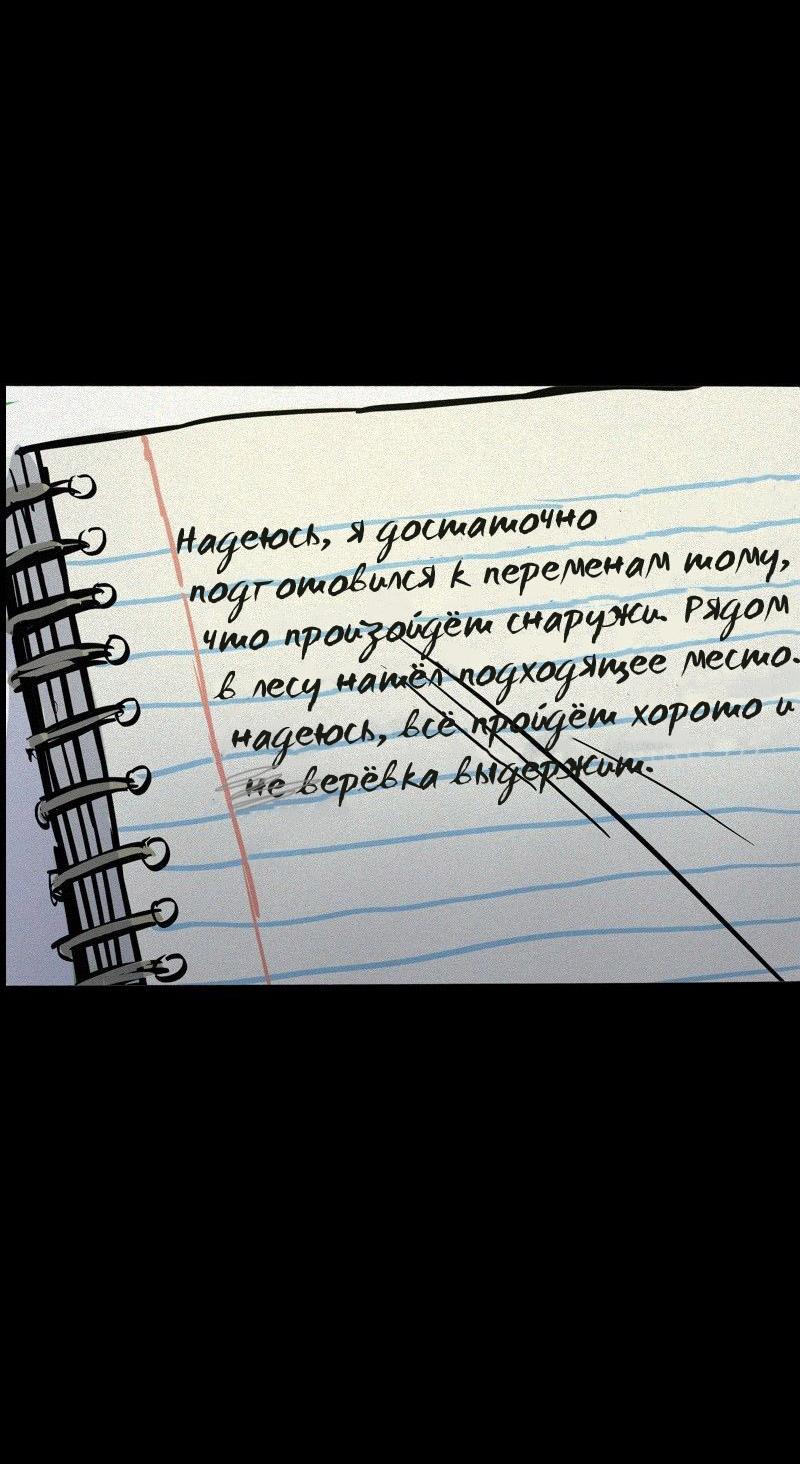 Надеюсь, я достаточно
подготовился к переменам тому,
что произойдёт снаружи. Рядом
в лесу нашёл подходящее место.
надеюсь, всё пройдёт хорошо и
не верёвка выдержит.